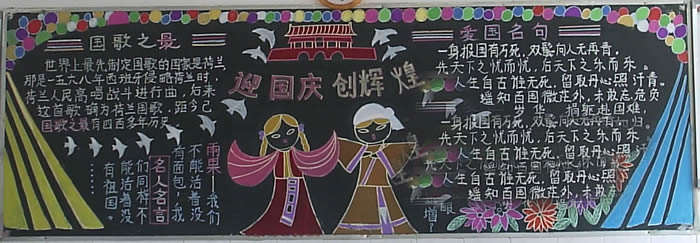 国歌之最
世界上最先制定国歌的国家是荷兰
那是一五六八年西班牙侵略荷兰时,
荷兰人民高唱战斗进行曲,后来
这首歌确为荷兰国歌,距今已
国歌之最有四百多年历史。
迎国庆创辉煌
雨果——我们
不能活着没
有面包,我
名人名言
们同样不
能活着没
有祖国。
爱国名句
一身报国有万死,双鬓向人无再青。
先天下之忧而忧,后天下之乐而乐。
人生自古谁无死,留取丹心照汗青。
一身报国有万死,双鬓向人无再
先天下之忧而忧,后天下之乐而乐。
人生自古谁无死,留取丹心照
人生自古谁无死,留取丹心照汗青。